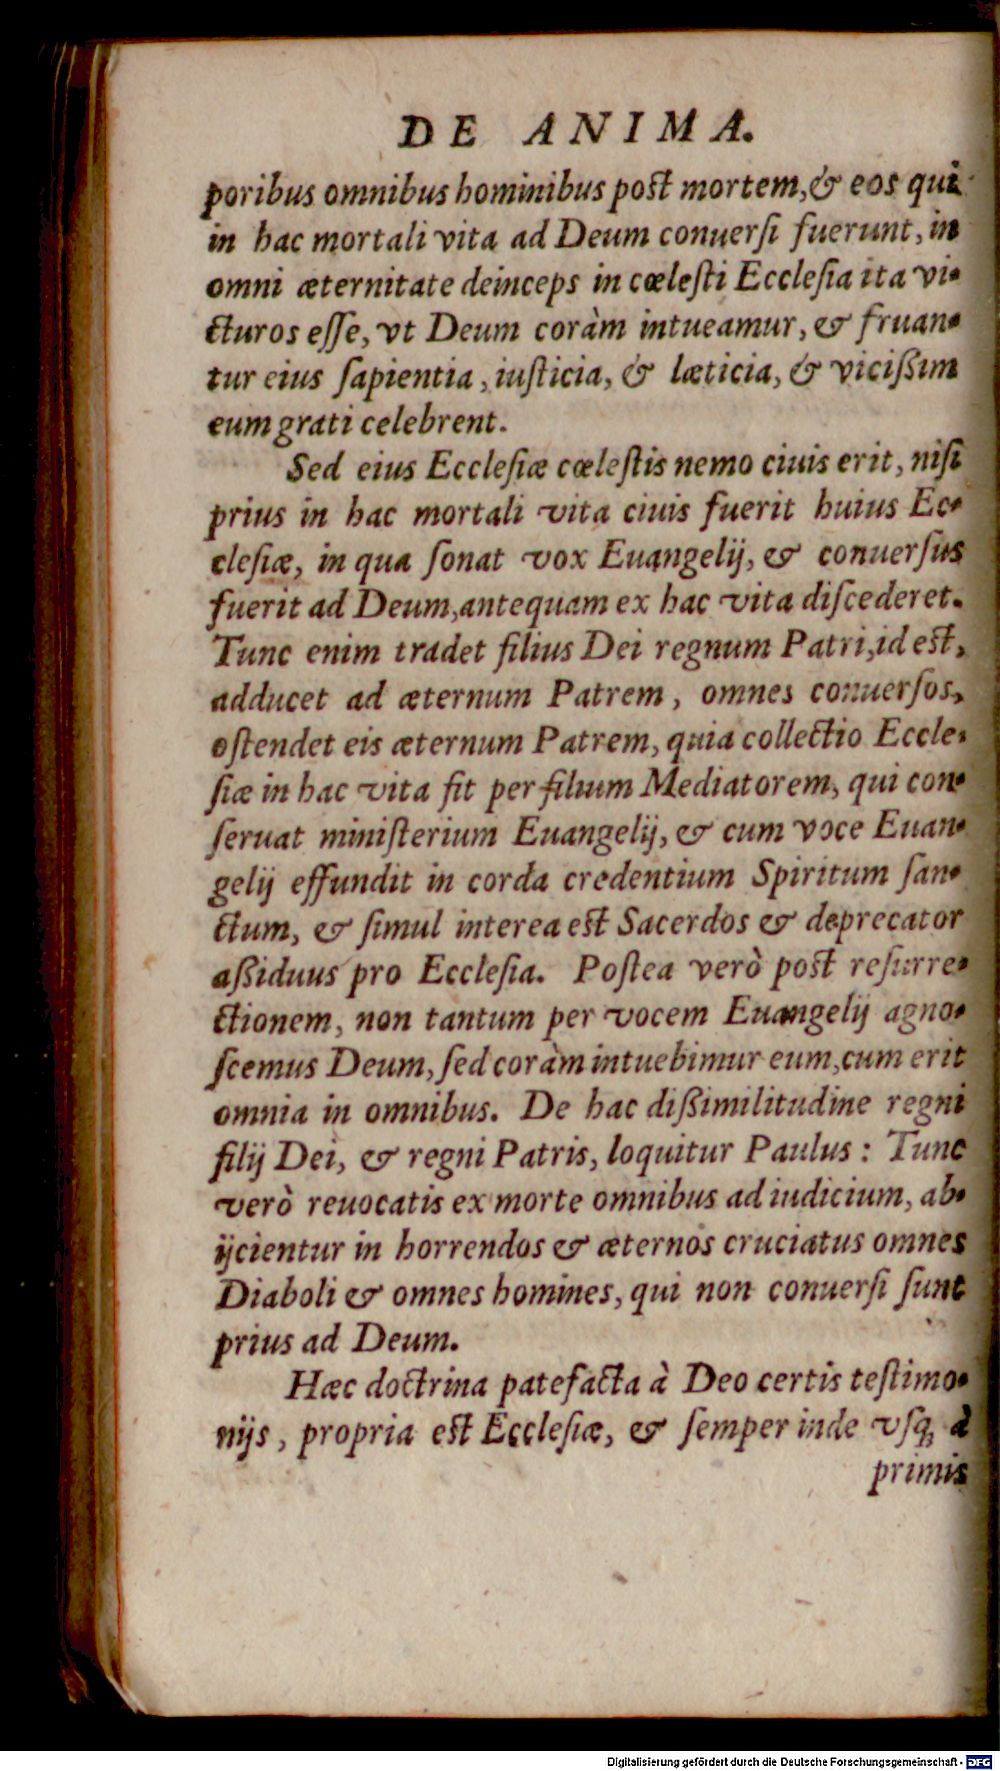 DE ANIMA.
poribus omnibus hominibus post mortem, & eos qui
in hac mortali vita ad Deum conuerſi fuerunt, in
omni æternitate deinceps in cœleſti Eccleſia ita vi-
cturos eſſe, vt Deum coràm intueamur, & fruan-
tur eius ſapientia, iuſticia, & læticia, & viciſsim
eum grati celebrent.
Sed eius Eccleſiæ cœleſtis nemo ciuis erit, niſi
prius in hac mortali vita ciuis fuerit huius Ec-
cleſiæ, in qua ſonat vox Euangelij, & conuerſus
fuerit ad Deum, antequam ex hac vita diſcederet.
Tunc enim tradet filius Dei regnum Patri, id eſt,
adducet ad æternum Patrem, omnes conuerſos,
oſtendet eis æternum Patrem, quia collectio Eccle-
ſiæ in hac vita fit per filium Mediatorem, qui con-
ſeruat miniſterium Euangelij, & cum voce Euan-
gelij effundit in corda credentium Spiritum ſan-
ctum, & ſimul interea eſt Sacerdos & deprecator
aſsiduus pro Eccleſia. Poſtea verò poſt reſurre-
ctionem, non tantum per vocem Euangelij agno-
ſcemus Deum, ſed coràm intuebimur eum, cum erit
omnia in omnibus. De hac diſsimilitudine regni
filij Dei, & regni Patris, loquitur Paulus: Tunc
verò reuocatis ex morte omnibus ad iudicium, ab-
ijcientur in horrendos & æternos cruciatus omnes
Diaboli & omnes homines, qui non conuerſi ſunt
prius ad Deum.
Hæc doctrina patefacta à Deo certis teſtimo-
nijs, propria eſt Eccleſiæ, & ſemper inde vſq; à
primis
Digitalisierung gefördert durch die Deutsche Forschungsgemeinschaft - DFG